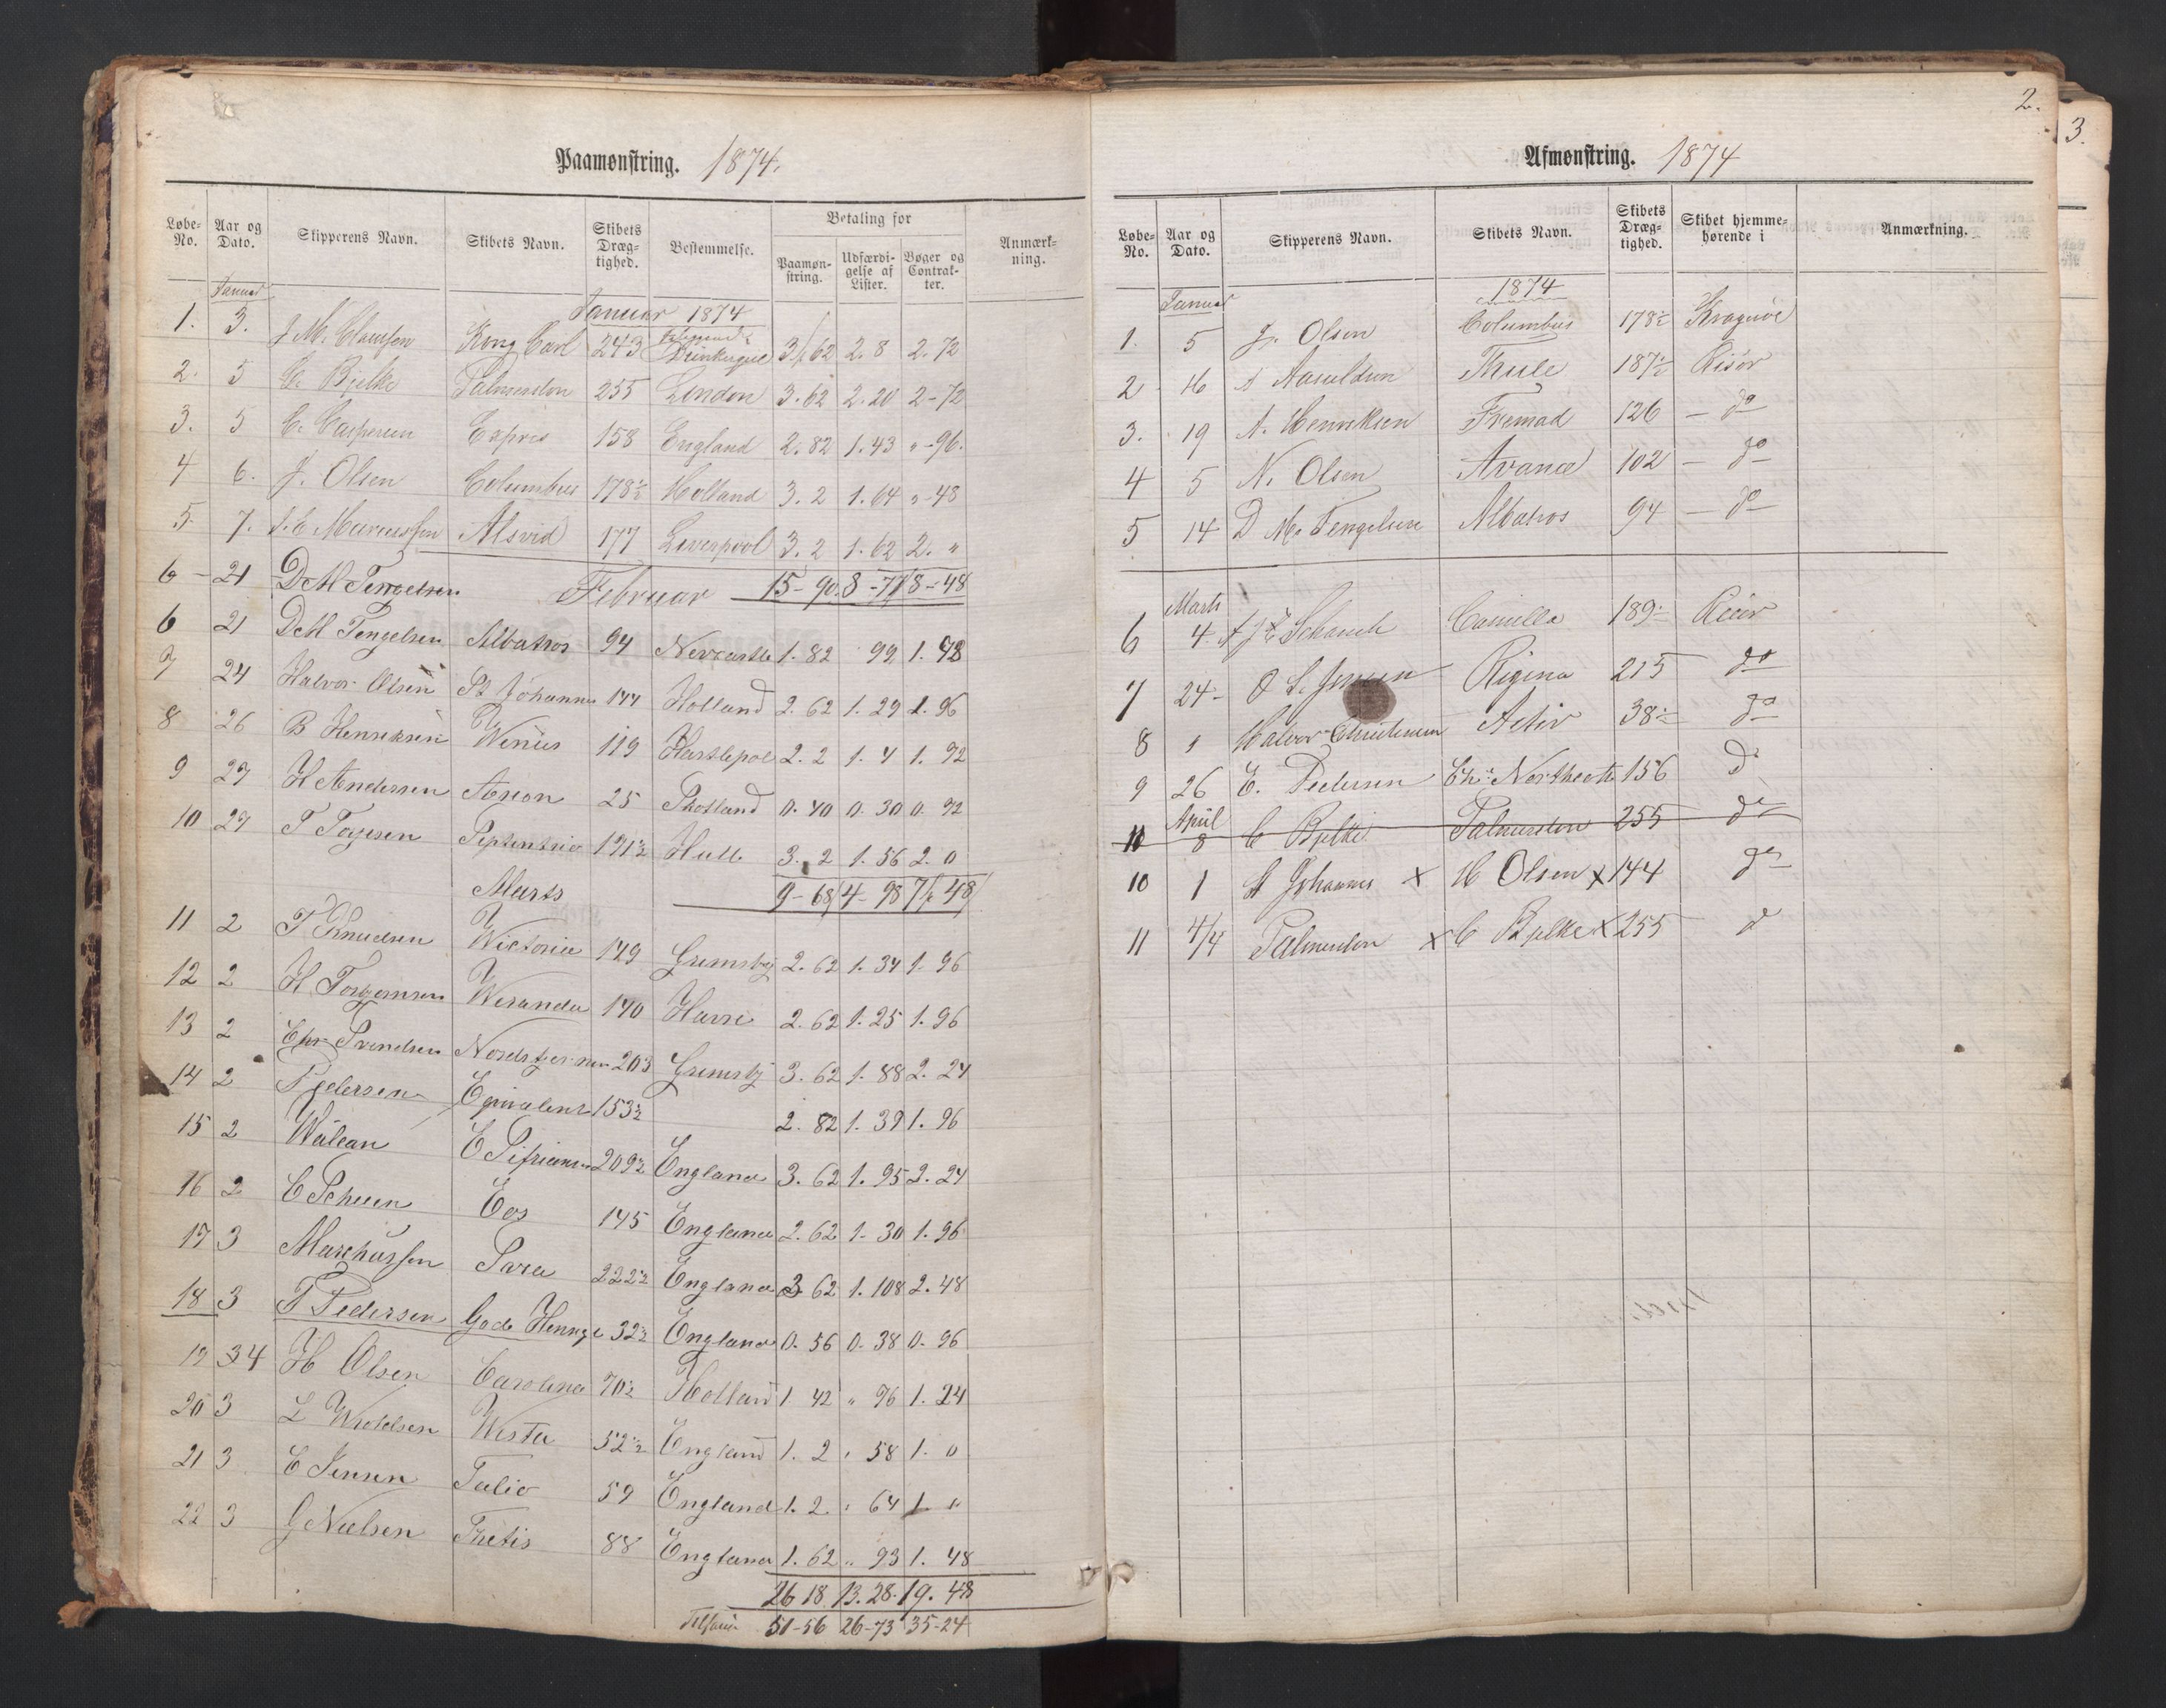 Paamønstring. 1874.
Løbe-No. Aar og Dato. Skipperens Navn. Skibets Navn. Skibets Drægtighed. Bestemmelse. Betaling for Anmærkning.
Paamønstring. Udfærdigelse af Lister. Bøger og Contrakter.
Januar Januar 1874
1. 3. J. M. Clausen Kong Carl 243 Dünkerque 3/62 2.8 2.72
2. 5 C. Bjelke Palmerston 255 London 3.62 2.20 2-72
3. 5 C. Caspersen Expres 158 England 2.82 1.43 "-96.
4 6. J. Olsen Columbus 178½ Holland 3.2 1.64 "-48
5. 7. Marcussen Alsvid 177 Liverpool 3.2 1.62 2. "
6 - 21 D M Tengelsen Februar 15-90 8-77 8-48
6 21 D M Tengelsen Albatros 94 Newcastle 1.82 99 1.48
7 24 Halvor Olsen St Johannes 144 Holland 2.62 1.29 1.96
8 26 B Henriksen Wenus 119 Hartlepol 2.2 1.4 1.92
9 27 H Andersen Arion 25 Skotland 0.40 0.30 0.92
10 27 T Tarjesen Septentrio 191½ Hull 3.2 1.56 2.0
Marts 9-68 4-98 7/48
11 2 T Knudsen Wictoria 149 Grimsby 2.62 1.34 1.96
12 2 H Torgersen Weranda 140 Havre 2.62 1.25 1.96
13 2 Chr Svendsen Nordstjernen 203 Grimsby 3.62 1.88 2.24
14 2 Pedersen Eqvivalent 153½ 2.82 1.39 1.96
15 2 Wulcan E 209½ England 3.62 1.95 2.24
16 2 C Scheen Eos 145 England 2.62 1.30 1.96
17 3 Marchussen Sara 222½ England 3 62 1.108 2.48
18 3 P Pedersen Gode Hennsigt 32½ England 0.56 0.38 0.96
19 34 H Olsen Carolina 70½ Holland 1 42 " 76 1.24
20 3 L Westa 52½ England 1.2 " 58 1.0
21 3 C Jensen Talio 59 England 1.2. " 64 1 "
22 3 G Nielsen Thetis 88 England 1.62 " 93 1.48
26 18 13.28 19.48
51-56 26-73 35-24
2.
3.
Afmønstring. 1874
Løbe-No. Aar og Dato. Skipperens Navn. Skibets Navn. Skibets Drægtighed. Skibet hjemmehørende i Anmærkning.
Januar 1874
1. 5 J. Olsen Columbus 178½ Kragerøe
2 16 A Aanuldsen Thule 187½ Risør
3. 19 A. Henriksen Fremad 126 - do
4 5 N. Olsen Avance 102 - do
5 14 D M. Tengelsen Albatros 94 - do
Marts
6 4. Schanch Camilla 189½ Risør
7 24 - O S. Jensen Regina 215 do
8 1 Halvor Christensen Activ 38½ do
9 26 E. Pedersen Northcote 156 do
April
10 8 C Bjelke Palmerston 255 do
10 1 St Johannes x H Olsen x 144 do
11 4/4 Palmerston x C Bjelke x 255 d